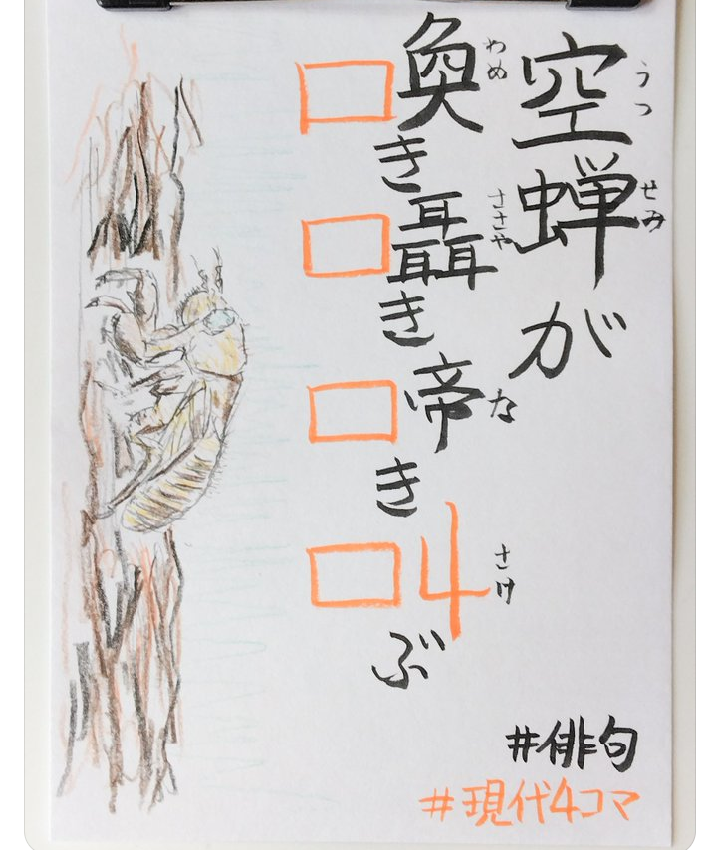 うつせみ
空蝉が
わめ ささや な さけ
奐き聶き帝き4ぶ
□□□□
#俳句
#現代4コマ